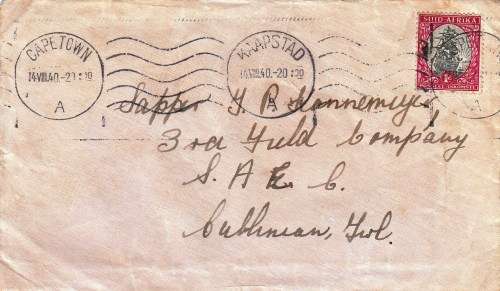 CAPETOWN
14.VIII.40.-20
A
KAAPSTAD
14.VIII.40.-20
A
SUID-AFRIKA
Sapper
3rd Field Company
S. A. E. C.
Cullinan, Tvl.